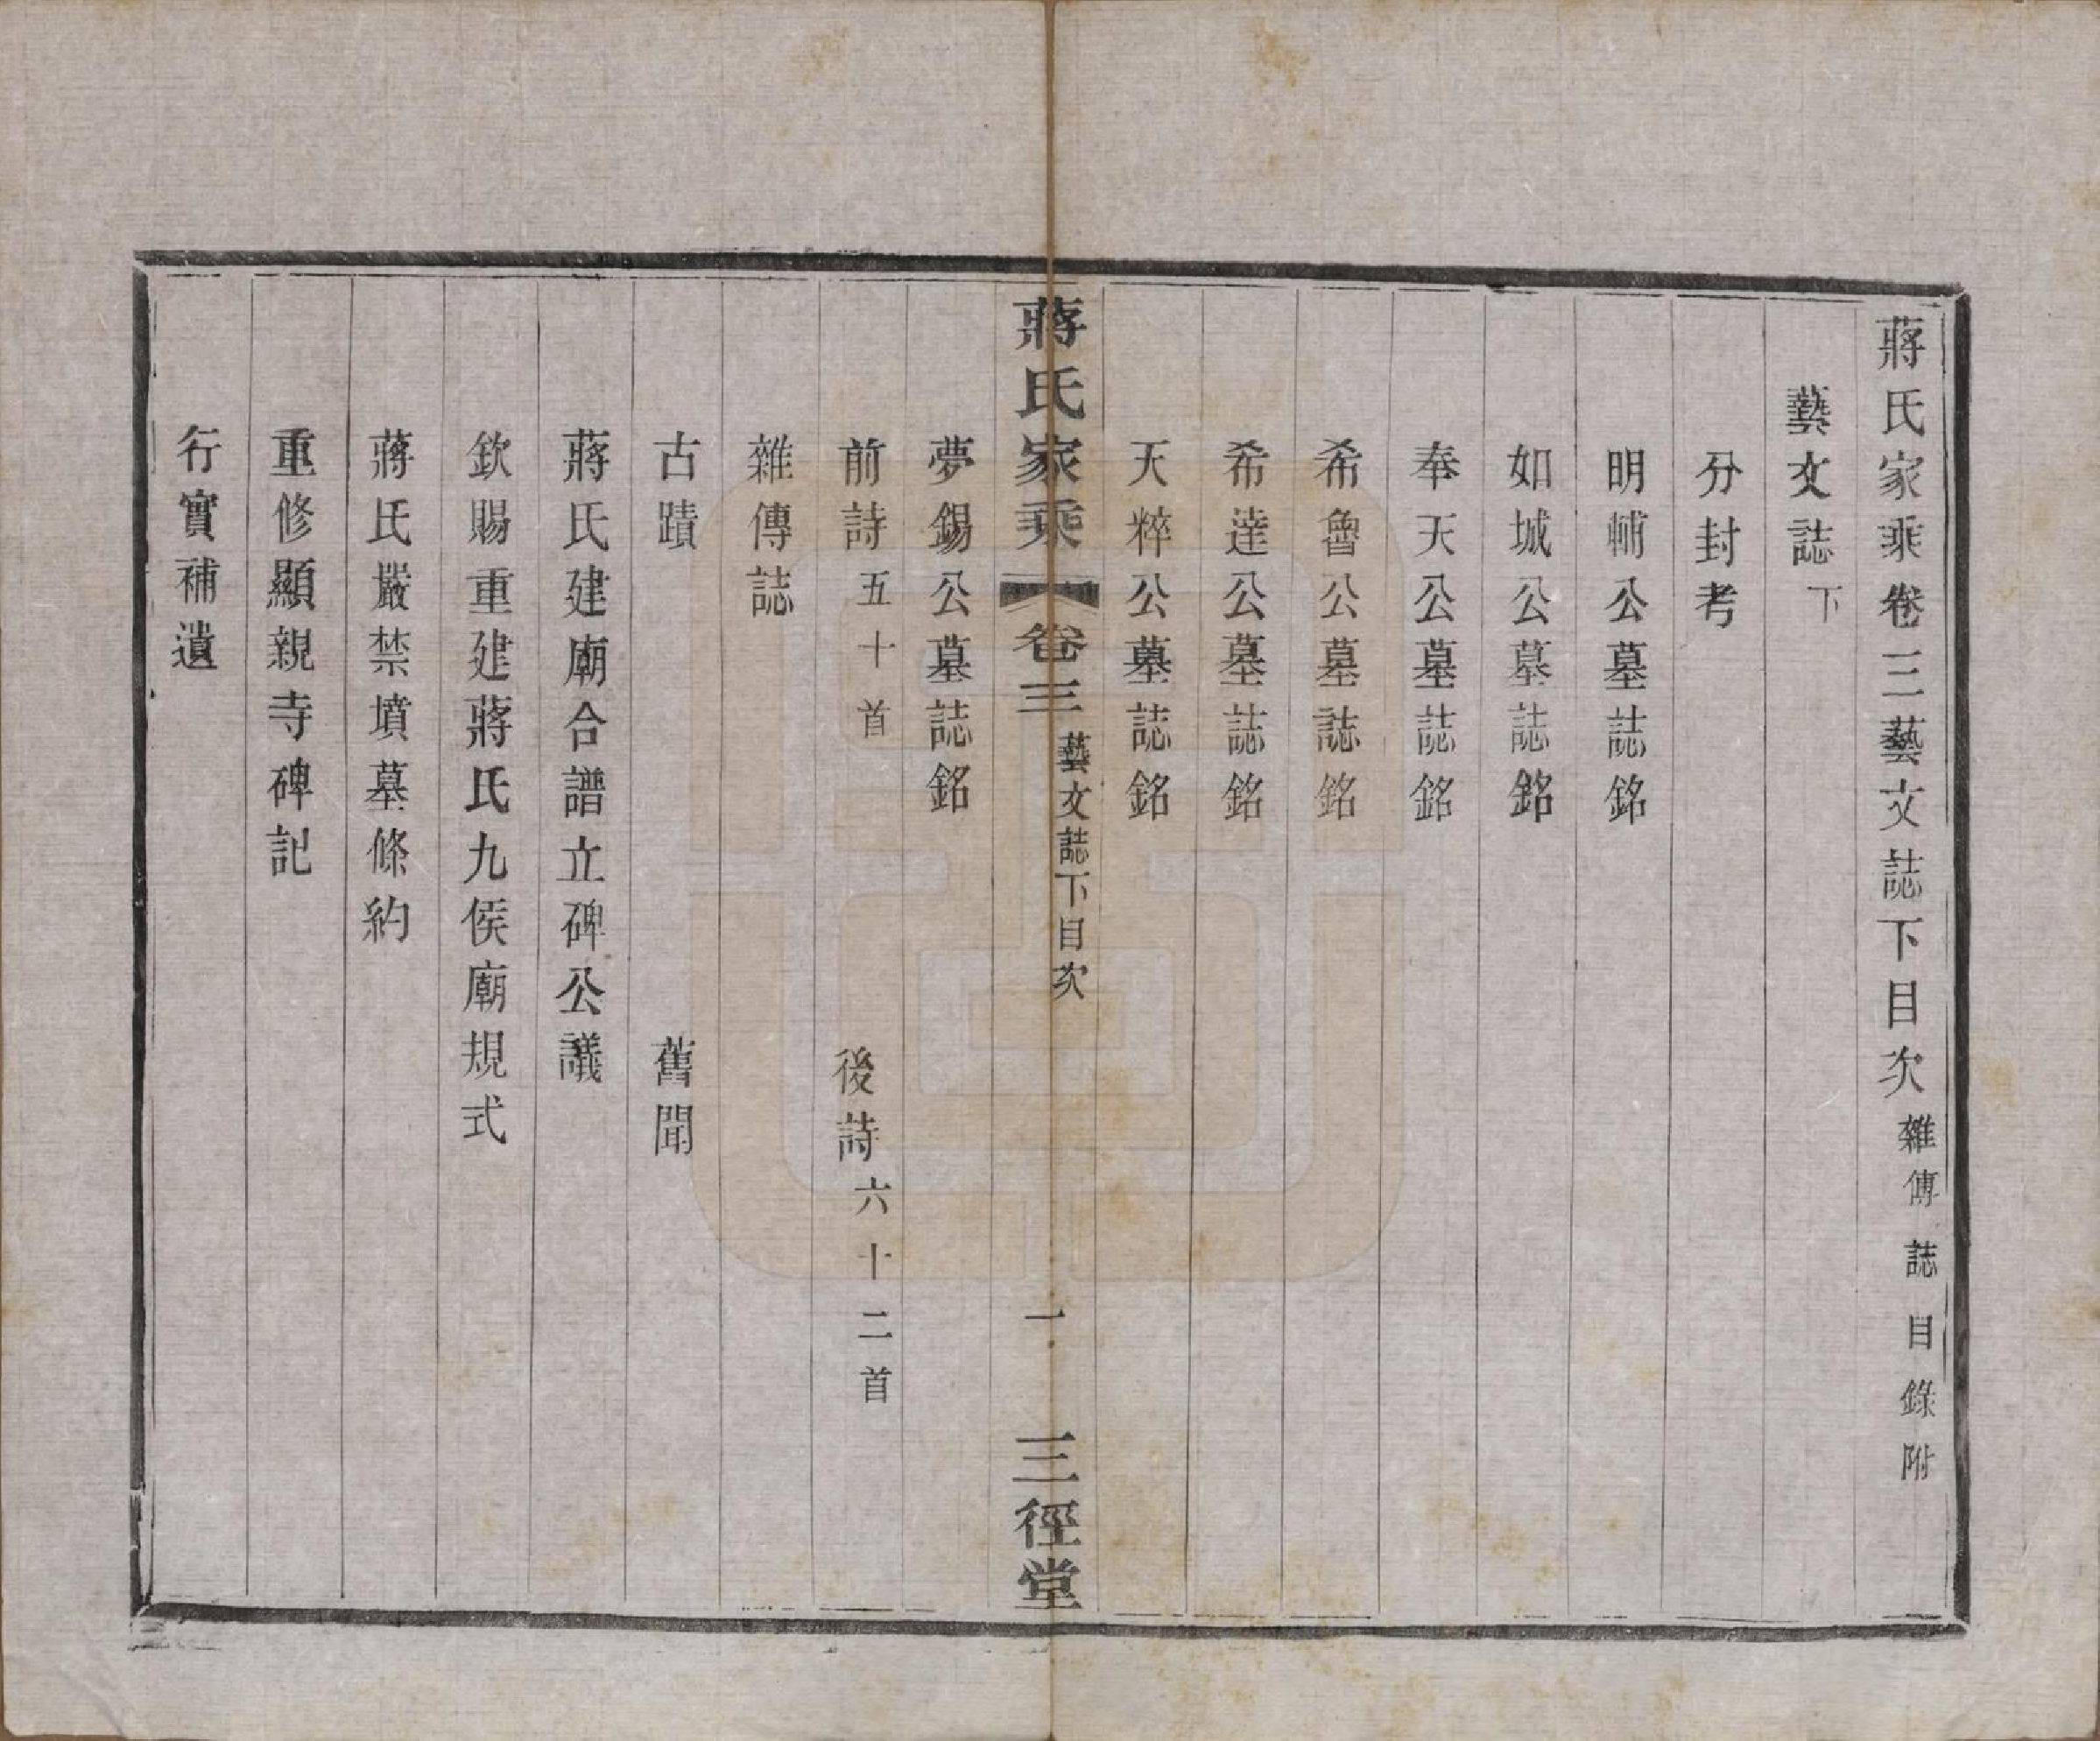 蔣氏家乘卷三藝文誌下目次雜傳誌目錄附
藝文誌下
分封考
明輔公墓誌銘
如城公墓誌銘
奉天公墓誌銘
希魯公墓誌銘
希達公墓誌銘
天粹公墓誌銘
蔣氏家乘 卷三 藝文誌下目次 一 三徑堂
夢錫公墓誌銘
前詩五十首 後詩六十二首
雜傳誌
古蹟 舊聞
蔣氏建廟合譜立碑公議
欽賜重建蔣氏九侯廟規式
蔣氏嚴禁墳墓條約
重修顯親寺碑記
行實補遺